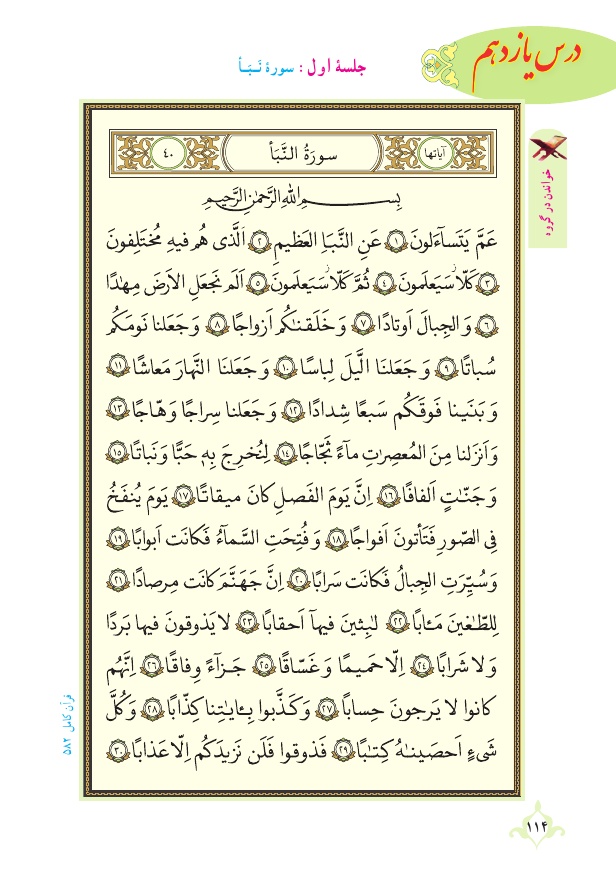 درس یازدهم
جلسهٔ اول : سورهٔ نَـبَـأ
خواندن در گروه
آیاتها سورَةُ النَّبَأ ٤٠
بِسمِ اللهِ الرَّحمٰنِ الرَّحیمِ
عَمَّ یَتَساءَلونَ ١ عَنِ النَّبَاِ العَظیمِ ٢ اَلَّذی هُم فیهِ مُختَلِفونَ
٣ کَلّا سَیَعلَمونَ ٤ ثُمَّ کَلّا سَیَعلَمونَ ٥ اَلَم نَجعَلِ الاَرضَ مِهٰدًا
٦ وَ الجِبالَ اَوتادًا ٧ وَ خَلَقنٰکُم اَزواجًا ٨ وَ جَعَلنا نَومَکُم
سُباتًا ٩ وَ جَعَلنَا الَّیلَ لِباسًا ١٠ وَ جَعَلنَا النَّهارَ مَعاشًا ١١
وَ بَنَینا فَوقَکُم سَبعًا شِدادًا ١٢ وَ جَعَلنا سِراجًا وَهّاجًا ١٣
وَ اَنزَلنا مِنَ المُعصِرٰتِ ماءً ثَجّاجًا ١٤ لِنُخرِجَ بِهٖ حَبًّا وَ نَباتًا ١٥
وَ جَنّٰتٍ اَلفافًا ١٦ اِنَّ یَومَ الفَصلِ کانَ میقاتًا ١٧ یَومَ یُنفَخُ
فِی الصّورِ فَتَأتونَ اَفواجًا ١٨ وَ فُتِحَتِ السَّماءُ فَکانَت اَبوابًا ١٩
وَ سُیِّرَتِ الجِبالُ فَکانَت سَرابًا ٢٠ اِنَّ جَهَنَّمَ کانَت مِرصادًا ٢١
لِلطّٰغینَ مَـٔابًا ٢٢ لٰبِثینَ فیها اَحقابًا ٢٣ لا یَذوقونَ فیها بَردًا
وَ لا شَرابًا ٢٤ اِلّا حَمیمًا وَ غَسّاقًا ٢٥ جَزاءً وِفاقًا ٢٦ اِنَّهُم
کانوا لا یَرجونَ حِسابًا ٢٧ وَ کَذَّبوا بِـٔایٰتِنا کِذّابًا ٢٨ وَ کُلَّ
شَیءٍ اَحصَینٰهُ کِتٰبًا ٢٩ فَذوقوا فَلَن نَزیدَکُم اِلّا عَذابًا ٣٠
قرآن کامل ۵۸۲
۱۱۴